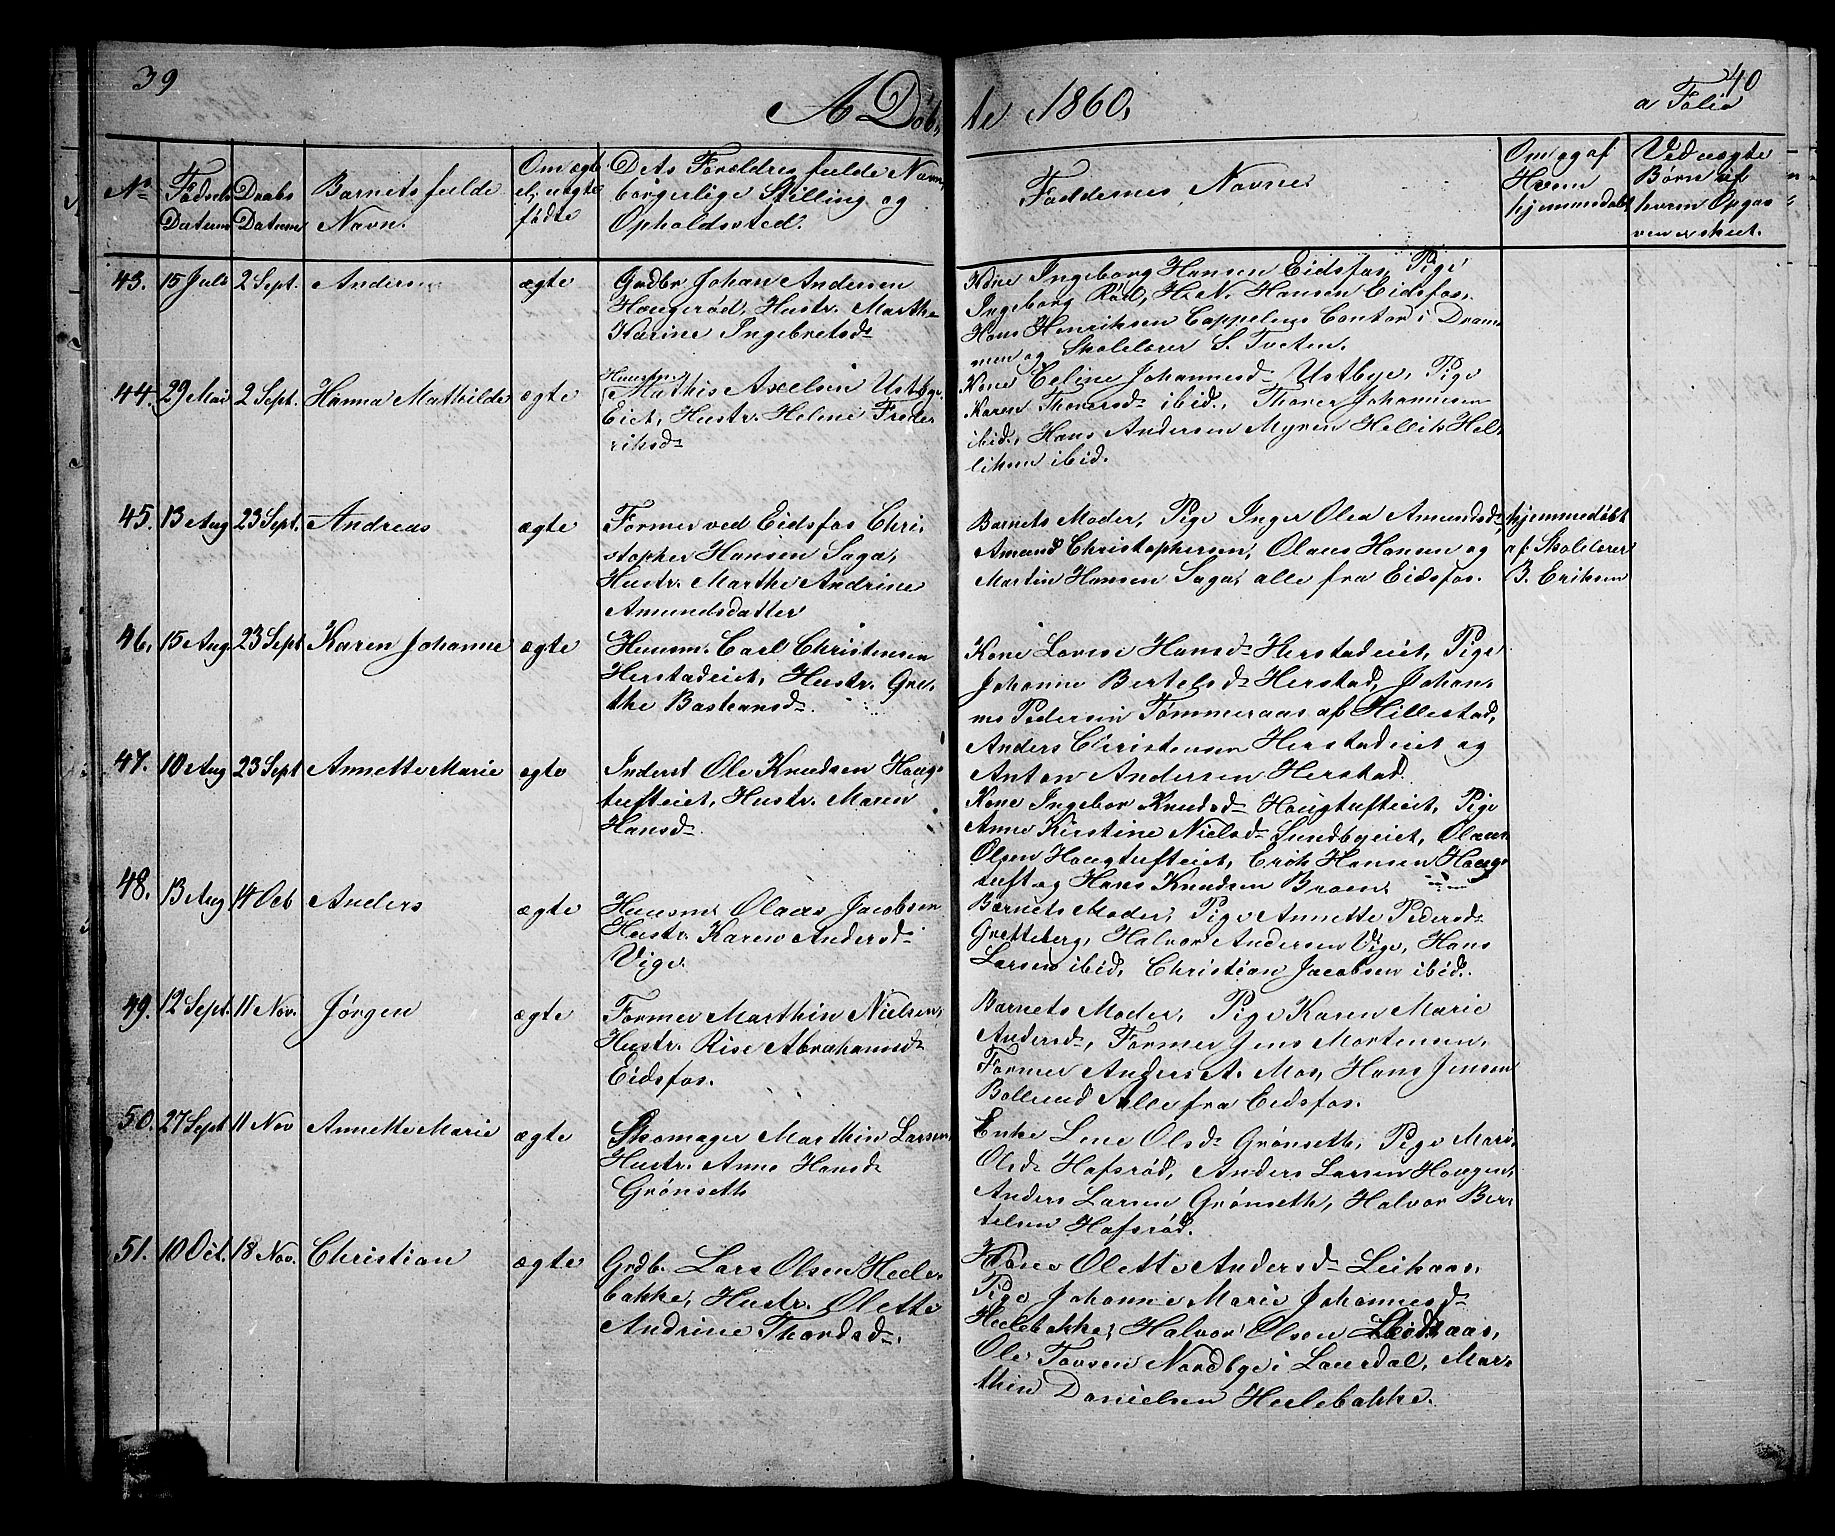 39
40
A Døb,
te 1860,
a Folio
No
Fødsels Datum
Daabs Datum
Barnets fulde Navn.
Om ægte el. uægte fødte
Dets Forældres fulde Navn, borgerlige Stilling og Opholdssted.
Faddernes Navne.
Om og af Hvem hjemmedøbt
Ved uægte Børn af hvem Opgaven er skeet.
43. 15 Juli 2 Sept. Anders ægte
Grdbr Johan Andersen
Haugerød, Hustr. Marthe
Karine Ingebretsd.
Kone Ingeborg Hansen Eidsfos, Pige
Ingeborg Rød, H. N. Hansen Eidsfos,
Hans Henriksen Cappelens Contor i Dram-
men og Skolelærer S. Tveten.
44. 29 Mai 2 Sept. Hanna Mathilde ægte
Huusm.
Mathis Axelsen Ustbye
Eiet, Hustr. Helene Frede-
riksd.
Kone Celine Johannesd. Ustbye, Pige
Karen Thoversd. ibid., Thover Johannesen
ibid., Hans Andersen Myren Hellik Hel-
liksen ibid.
45. 13 Aug 23 Sept. Andreas ægte
Former ved Eidsfos Chri-
stopher Hansen Saga,
Hustr. Marthe Andrine
Amundsdatter
Barnets Moder, Pige Inger Olea Amundsd.,
Amund Christophersen, Olaus Hansen og
Martin Hansen Saga, alle fra Eidsfos.
hjemmedøbt
af Skolelærer
B. Eriksen
46. 15 Aug 23 Sept Karen Johanne ægte
Huusm. Carl Christensen
Herstadeiet, Hustr. Gre-
the Bastiansd.
Kone Lovise Hansd. Herstadeiet, Pige
Johanne Bertelsd. Herstad, Johan-
nes Pedersen Tømmeraas af Hillestad,
Anders Christensen Herstadeiet og
Anton Andersen Herstad.
47. 10 Aug 23 Sept Annette Marie ægte
Inderst Ole Knudsen Haug-
tufteiet, Hustr. Maren
Hansd.
Kone Ingebor Knudsd. Haugtufteiet, Pige
Anne Kirstine Nielsd. Sundbyeiet, Olaus
Olsen Haugtufteiet, Erik Hansen Haug-
tuft og Hans Knudsen Braen.
48. 13 Aug 14 Oct Anders ægte
Huusm. Olaus Jacobsen
Hustr. Karen Andersd.
Vige.
Barnets Moder, Pige Annette Pedersd.
Gretteberg, Halvor Andersen Vige, Hans
Larsen ibid, Christian Jacobsen ibid.
49. 12 Sept. 11 Nov. Jørgen ægte
Former Marthin Nielsen,
Hustr. Rise Abrahamsd.
Eidsfos.
Barnets Moder, Pige Karen Marie
Andersd., Former Jens Mortensen,
Former Anders A. Moe, Hans Jensen
Bollerud Alle fra Eidsfos.
50. 27 Sept 11 Nov Annette Marie ægte
Skomager Marthin Larsen,
Hustr. Anne Hansd.
Grønseth
Enke Lene Olsd. Grønseth, Pige Marie
Olsd. Hafsrød, Anders Larsen Haugen,
Anders Larsen Grønseth, Halvor Ber-
telsen Hafsrød.
51. 10 Oct. 18 Nov. Christian ægte
Grdb. Lars Olsen Heele-
bakke, Hustr. Olette
Andrine Thordsd.
Kone Olette Andersd. Leikaas,
Pige Johanne Marie Johannesd.
Heelebakke, Halvor Olsen
Ole Tovsen Nordbye i Laurdal, Mar-
thin Danielsen Heelebakke.